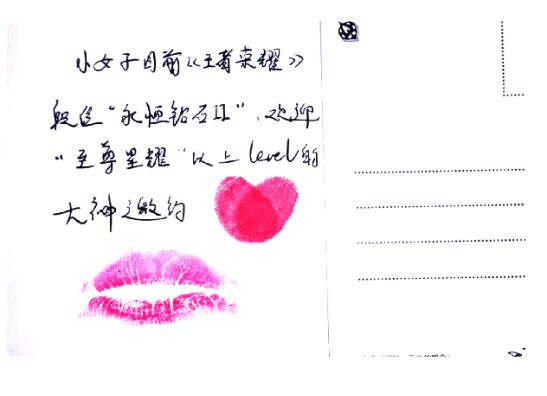 小女子目前《王者荣耀》
段位“永恒钻石II”，欢迎
“至尊星耀”以上level的
大神邀约